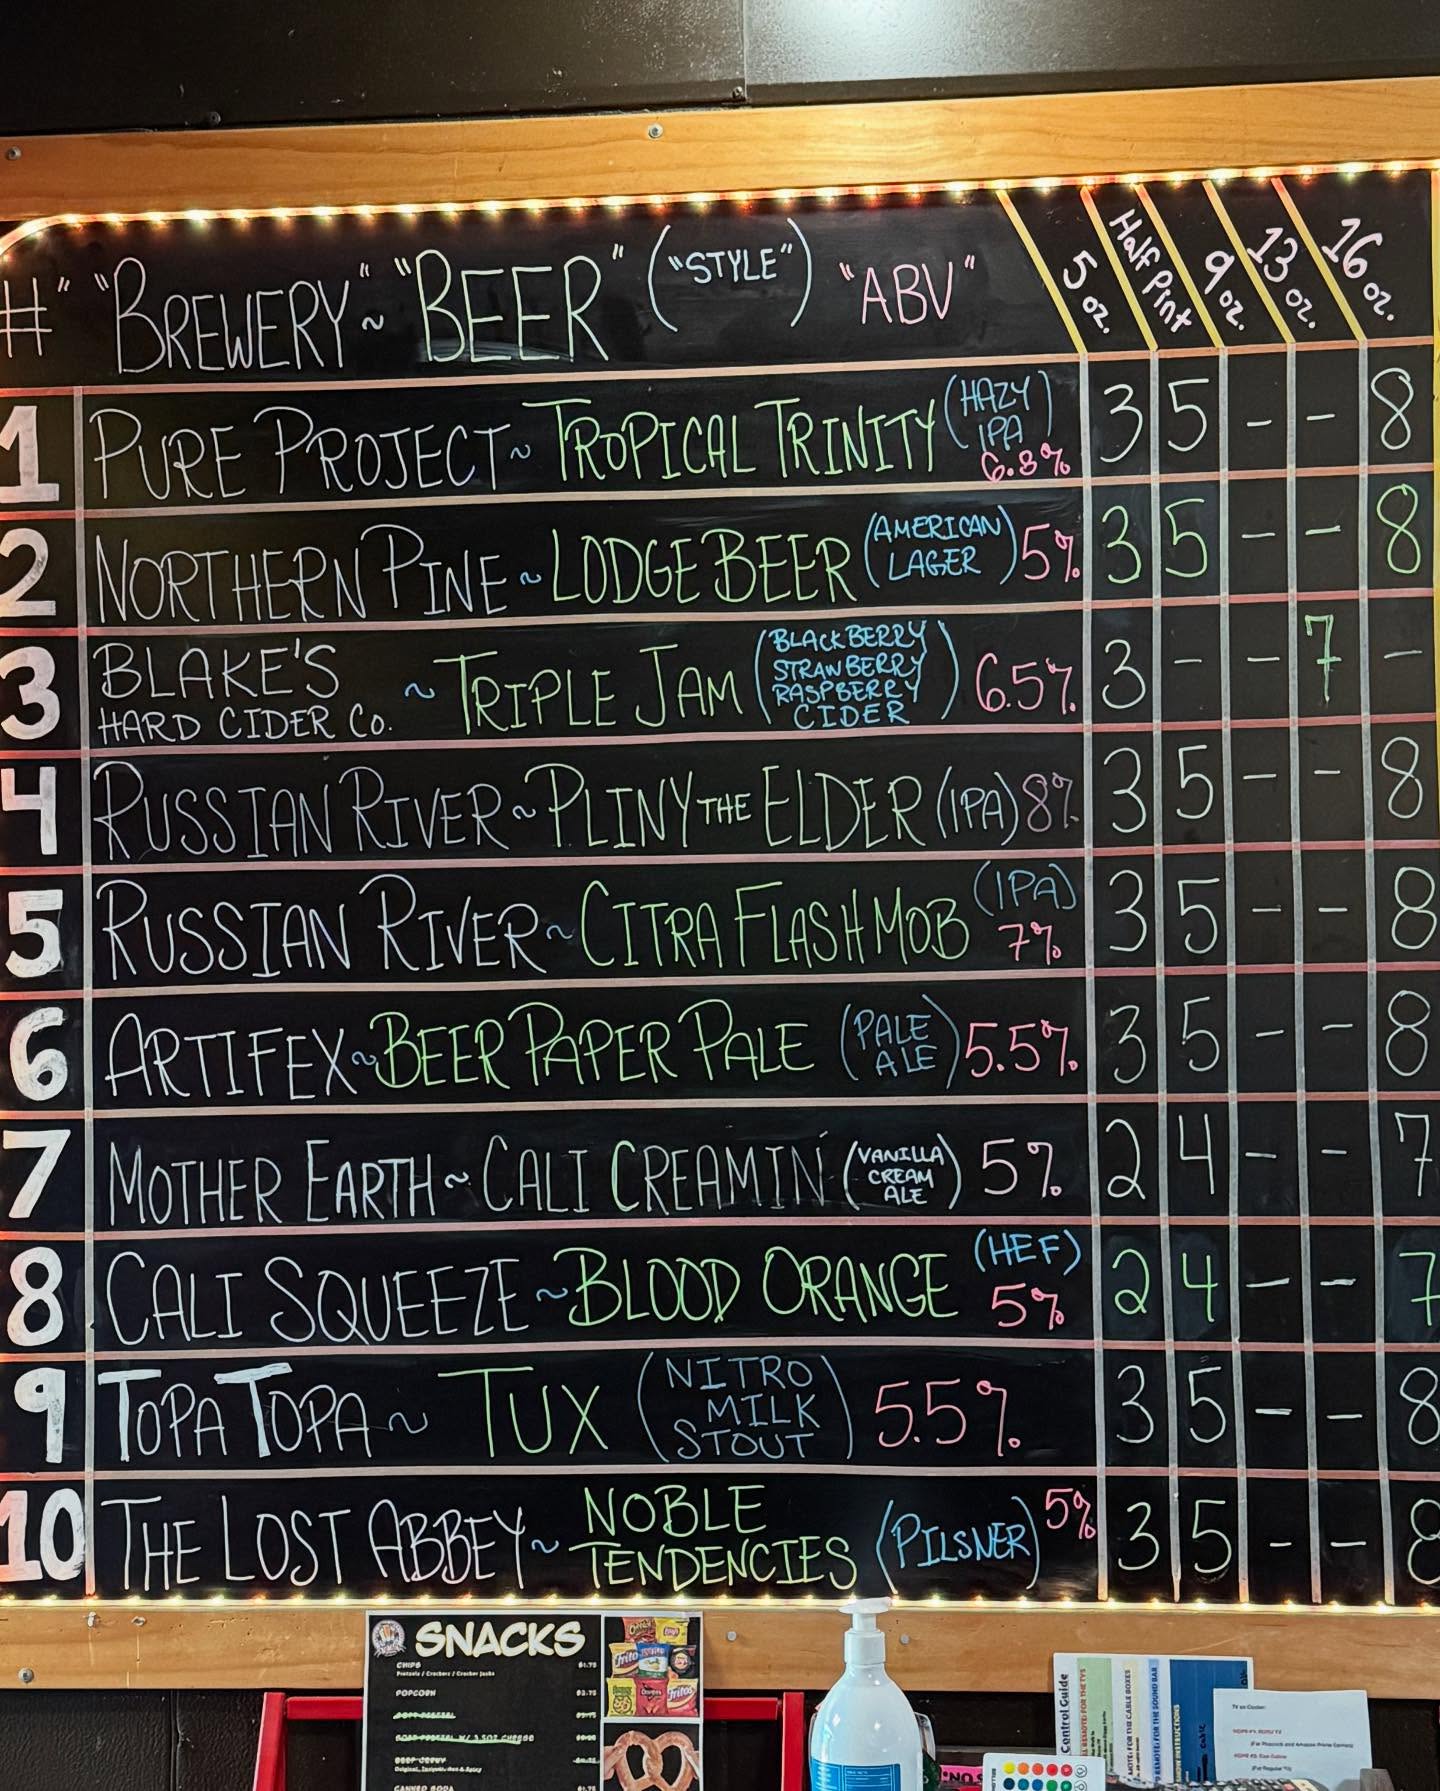 #" "BREWERY" ~ "BEER" ("STYLE") "ABV" 5 oz. Half Pint 9 oz. 13 oz. 16 oz.
1 PURE PROJECT ~ TROPICAL TRINITY (HAZY IPA) 6.8% 3 5 - - 8
2 NORTHERN PINE ~ LODGE BEER (AMERICAN LAGER) 5% 3 5 - - 8
3 BLAKE'S HARD CIDER CO. ~ TRIPLE JAM (BLACKBERRY STRAWBERRY RASPBERRY CIDER) 6.5% 3 - - 7 -
4 RUSSIAN RIVER ~ PLINY THE ELDER (IPA) 8% 3 5 - - 8
5 RUSSIAN RIVER ~ CITRA FLASH MOB (IPA) 7% 3 5 - - 8
6 ARTIFEX ~ BEER PAPER PALE (PALE ALE) 5.5% 3 5 - - 8
7 MOTHER EARTH ~ CALI CREAMIN' (VANILLA CREAM ALE) 5% 2 4 - - 7
8 CALI SQUEEZE ~ BLOOD ORANGE (HEF) 5% 2 4 - - 7
9 TOPA TOPA ~ TUX (NITRO MILK STOUT) 5.5% 3 5 - - 8
10 THE LOST ABBEY ~ NOBLE TENDENCIES (PILSNER) 5% 3 5 - - 8
SNACKS
CHIPS $1.75
Pretzels / Crackers / Cracker Jacks
POPCORN
Control Guide